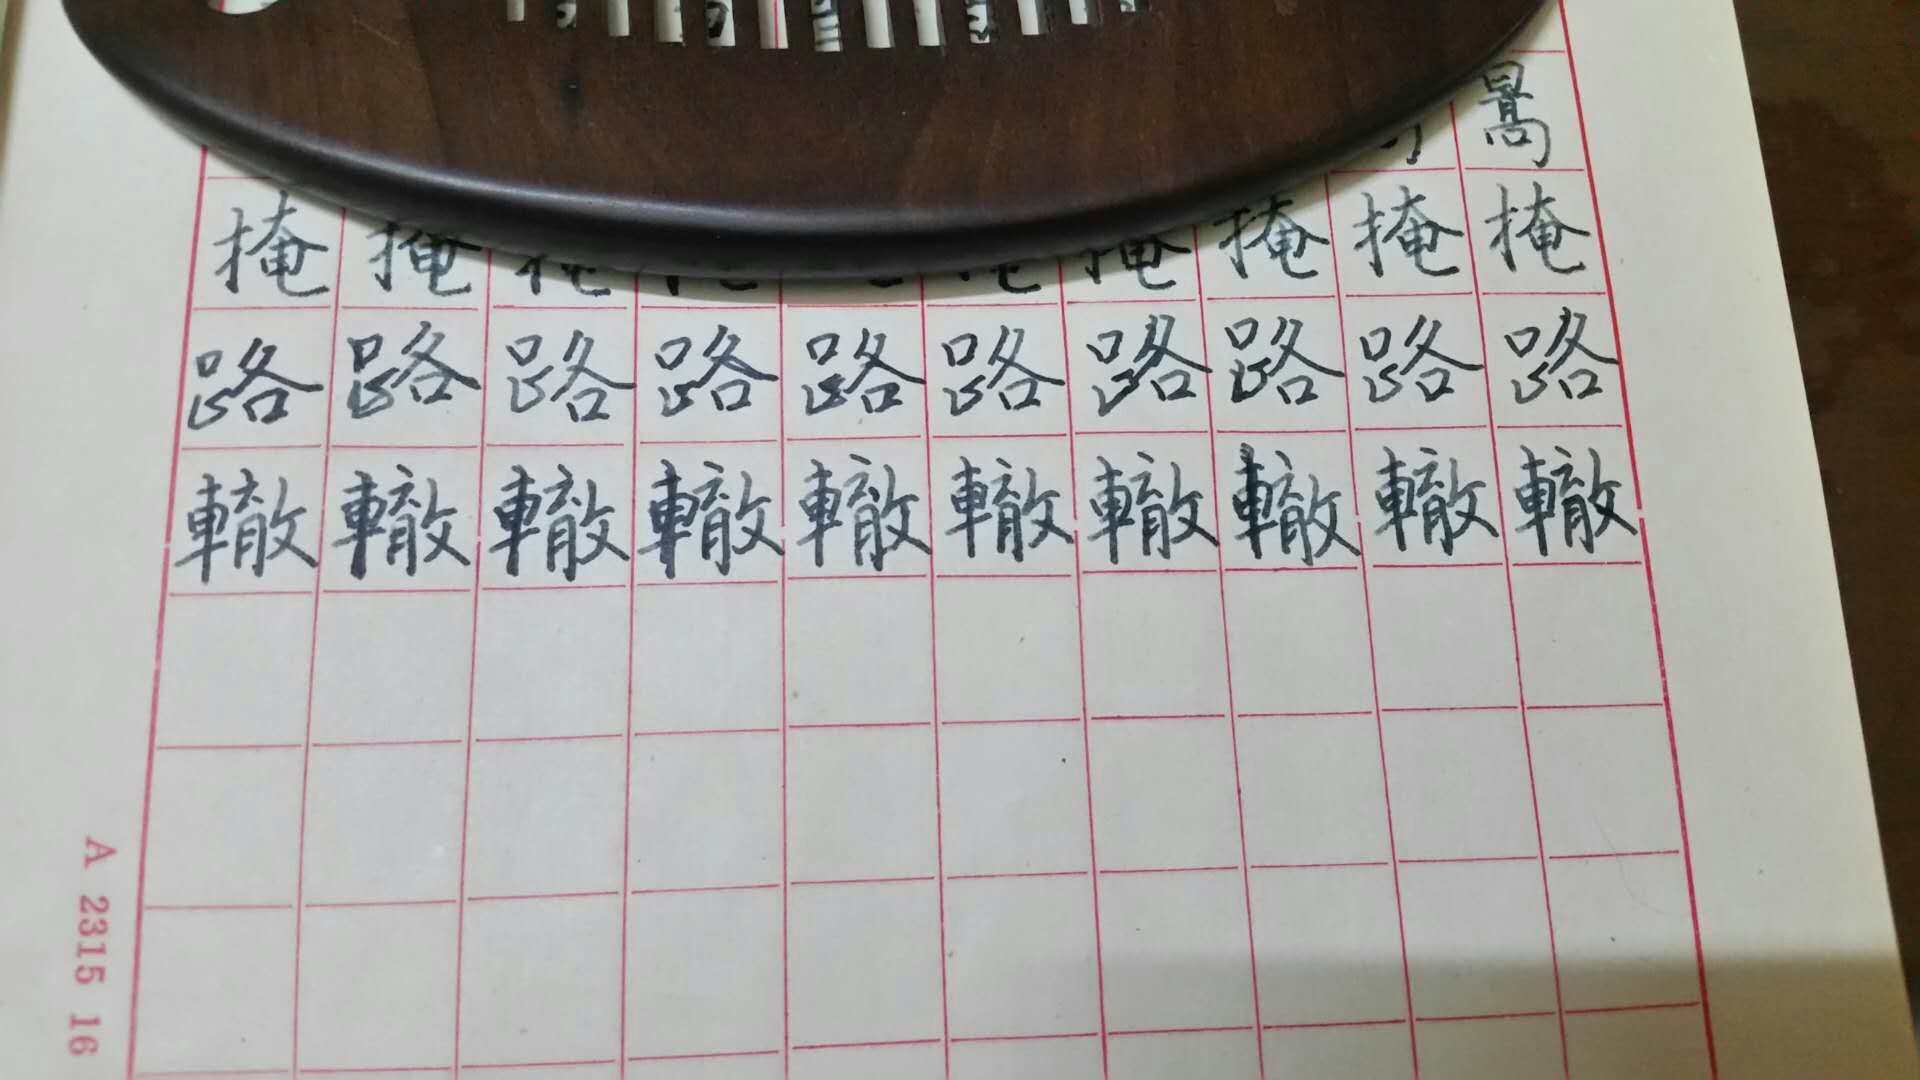 掩掩掩掩掩掩
路路路路路路路路路路
轍轍轍轍轍轍轍轍轍轍
A 2315 16